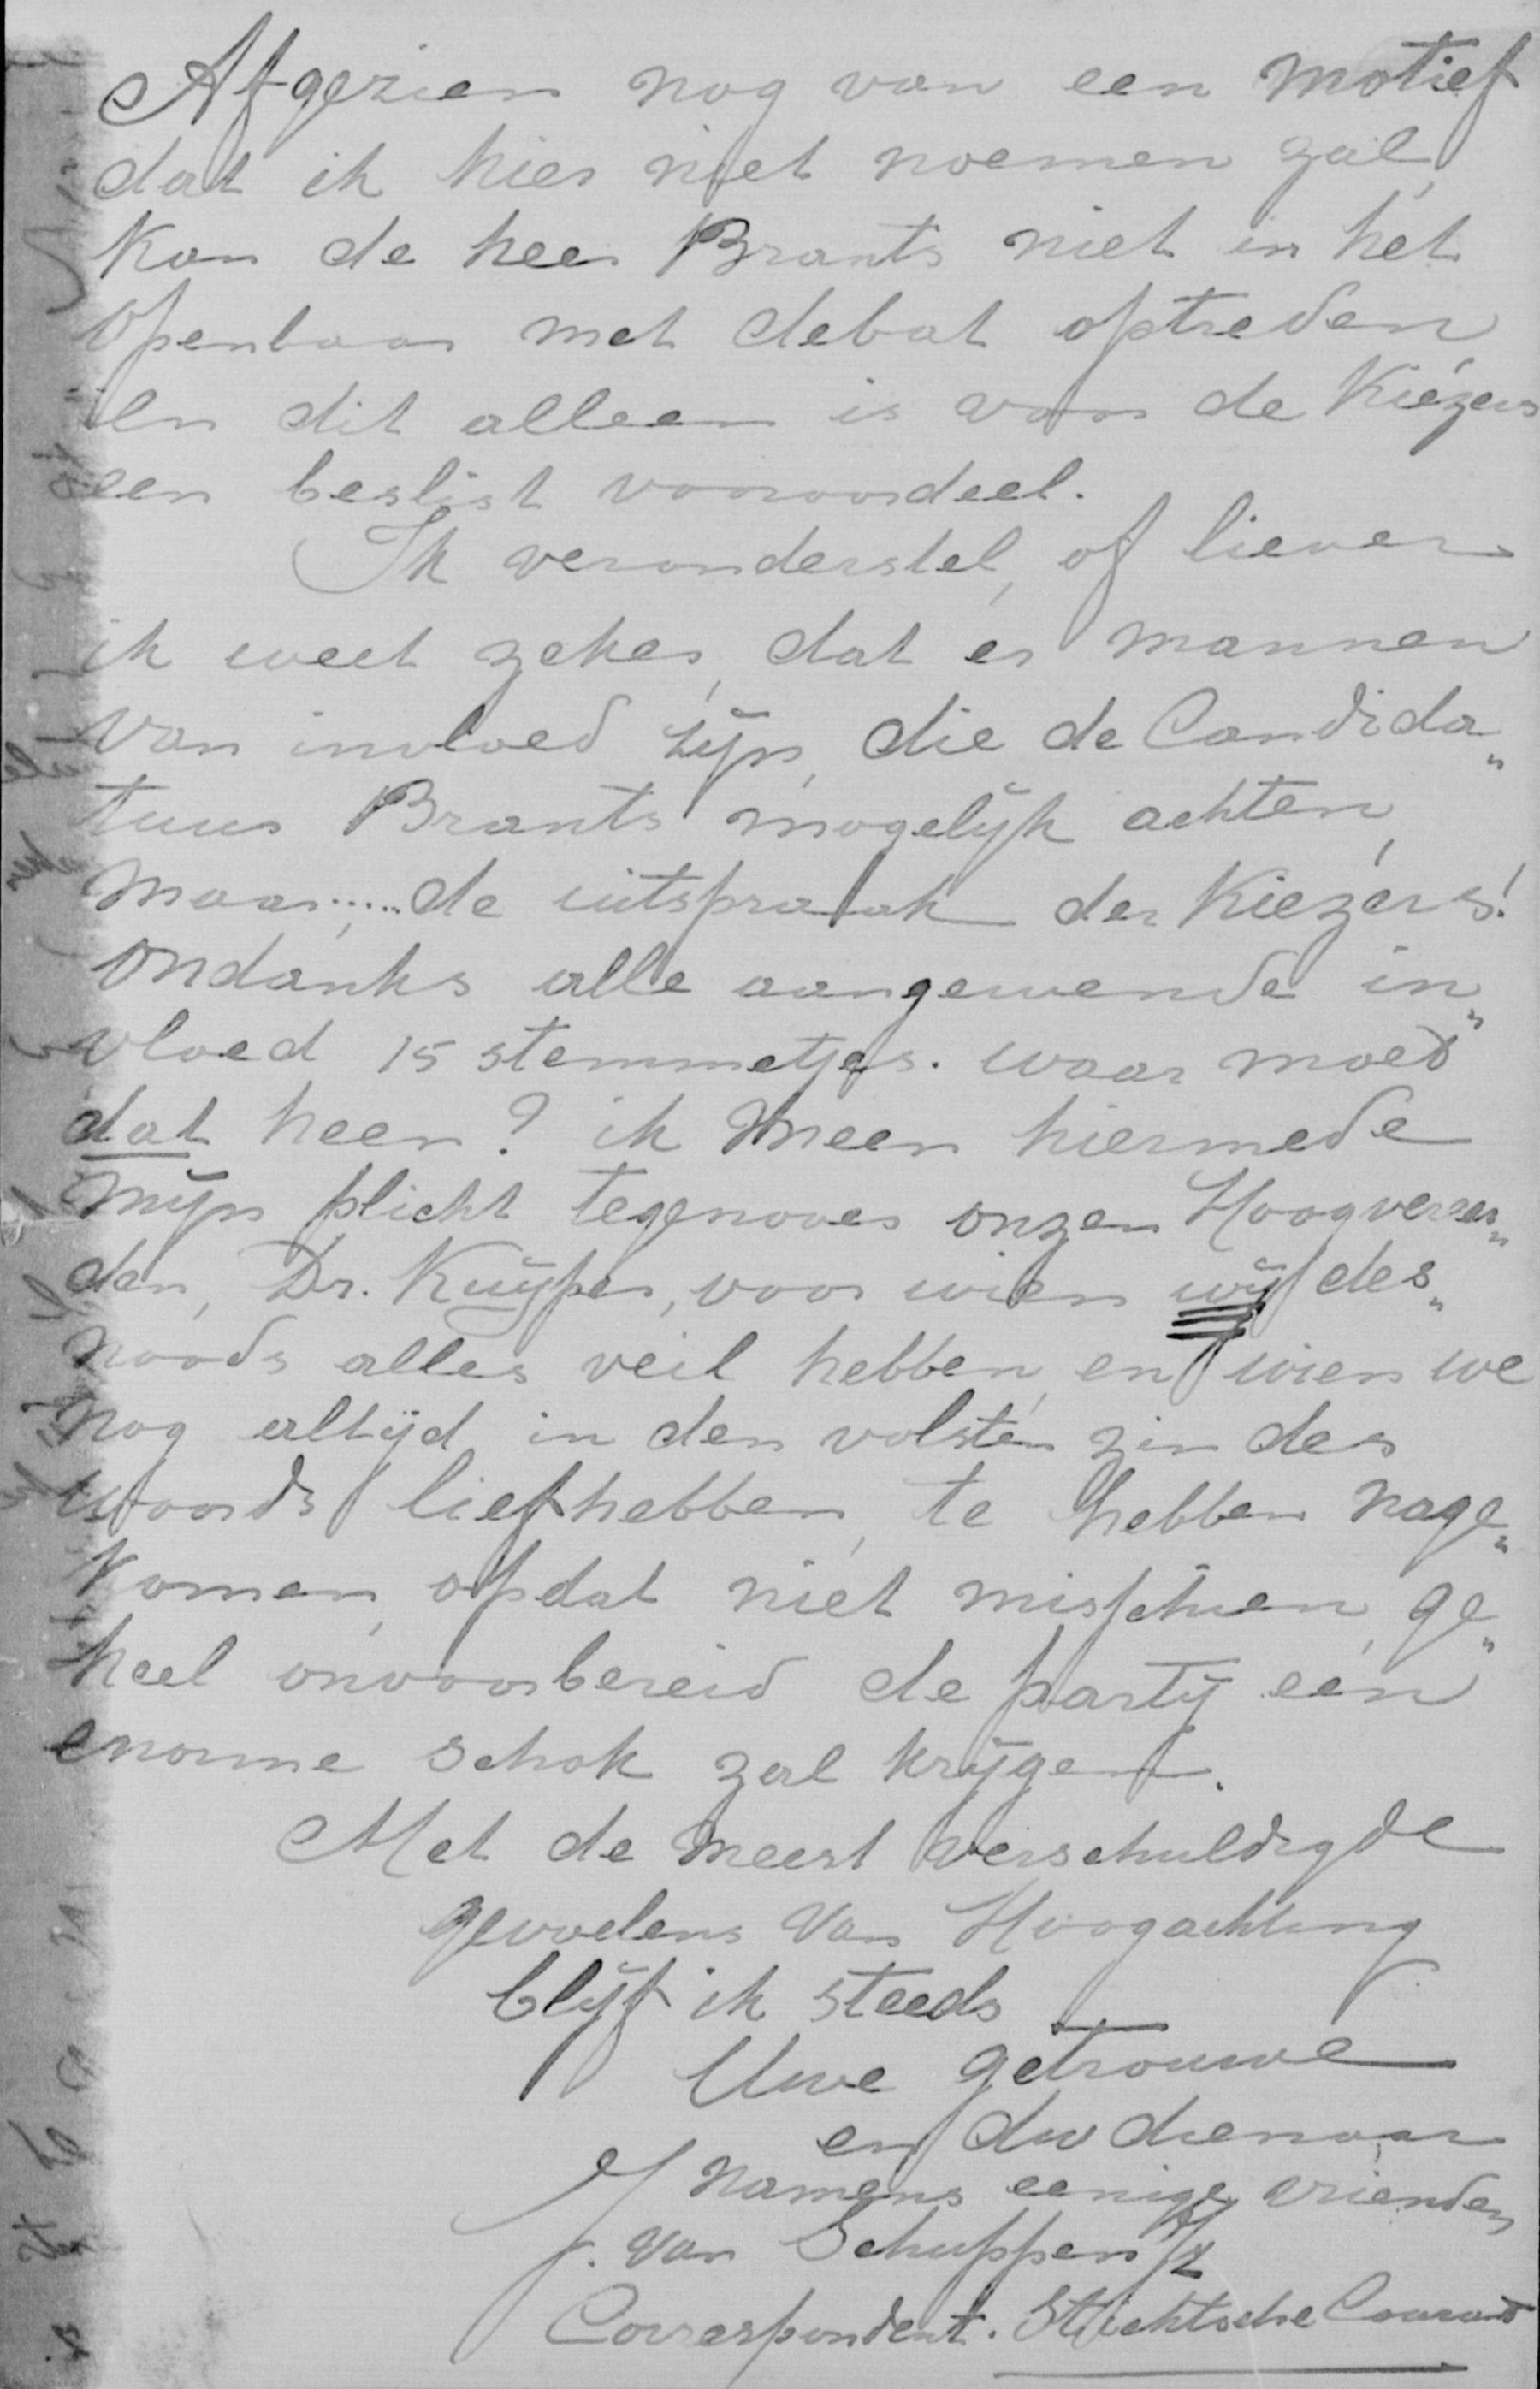 Afgezien nog van een motief
dat ik hier niet noemen zal,
kan de heer Brants niet in het
openbaar met debat optreden,
en dit alleen is voor de Kiezers
een beslist vooroordeel.
Ik veronderstel, of liever
ik weet zeker, dat er mannen
van invloed zijn, die de Candida„
tuur Brants mogelijk achten,
maar..... de uitspraak der Kiezers!
ondanks alle aangewende in„
vloed 15 stemmetjes. waar moet
dat heen? ik meen hiermede
mijn plicht tegenover onzen Hoogvereer„
den, Dr. Kuyper, voor wien wij des„
noods alles veil hebben, en wien we
nog altijd in den volsten zin des
woords liefhebben, te hebben nage„
komen, opdat niet misschien, ge„
heel onvoorbereid de partij een
enorme schok zal krijgen.
Met de meest verschuldigde
gevoelens van Hoogachting
blijf ik steeds
Uwe getrouwe
en dw dienaar
namens eenige vrienden
J. van Schuppen Jz
Correspondent. Stichtsche Courant